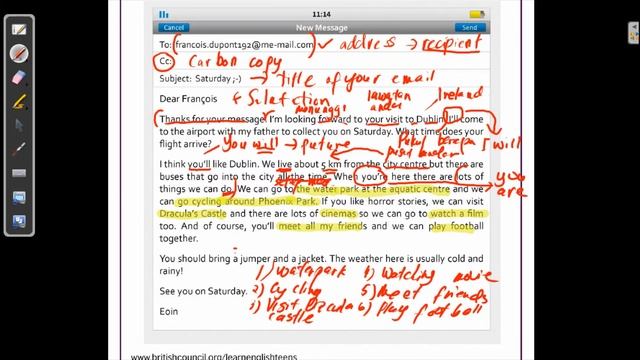 11:14
Cancel New Message Send
To: francois.dupont192@me-mail.com address → recipient
Cc: Carbon copy
Subject: Saturday ;-) → title of your email
Dear François
Ireland
Thanks for your message! I'm looking forward to your visit to Dublin. I'll come
I will
to the airport with my father to collect you on Saturday. What time does your
flight arrive? you will → future
I think you'll like Dublin. We live about 5 km from the city centre but there are
buses that go into the city all the time. When you're here there are lots of
you are
things we can do. We can go to the water park at the aquatic centre and we
can go cycling around Phoenix Park. If you like horror stories, we can visit
Dracula's Castle and there are lots of cinemas so we can go to watch a film
too. And of course, you'll meet all my friends and we can play football
together.
You should bring a jumper and a jacket. The weather here is usually cold and
rainy!
1) waterpark
2) cycling
Watching movie
5) meet friends
6) play football
castle
See you on Saturday.
Eoin
www.britishcouncil.org/learnenglishteens